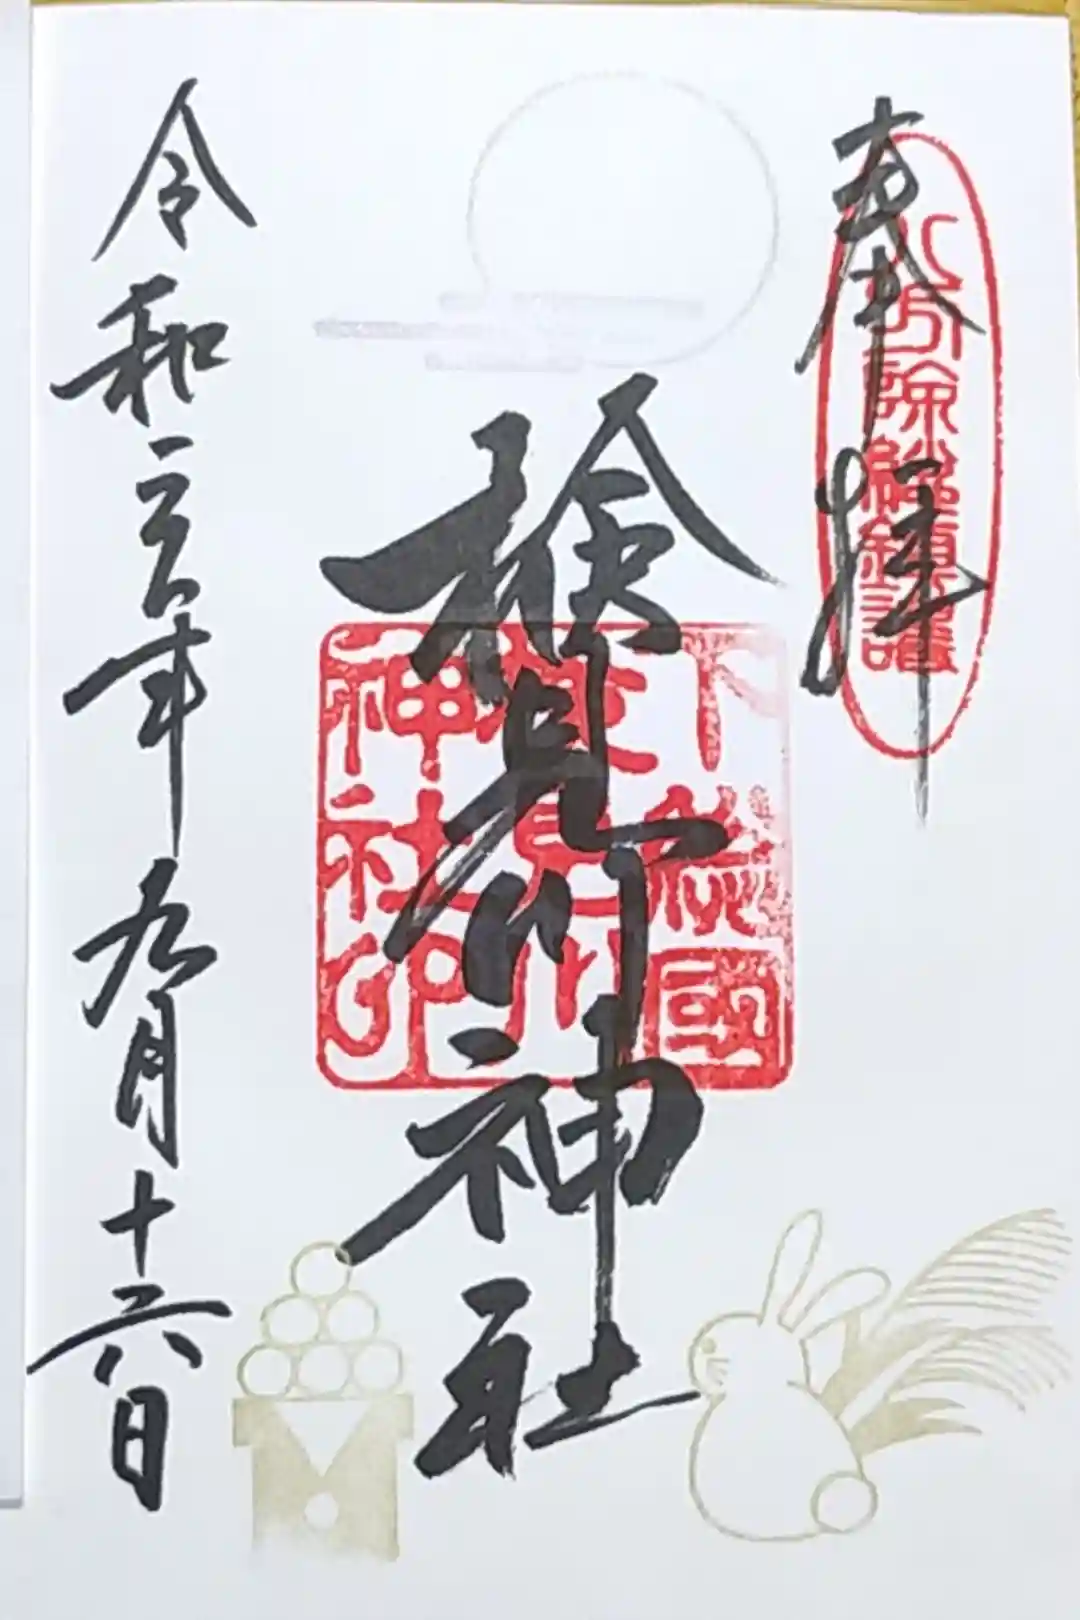 奉拝
八方除総鎮護
検見川神社
下総國
検見川
神社印
令和 年九月十六日